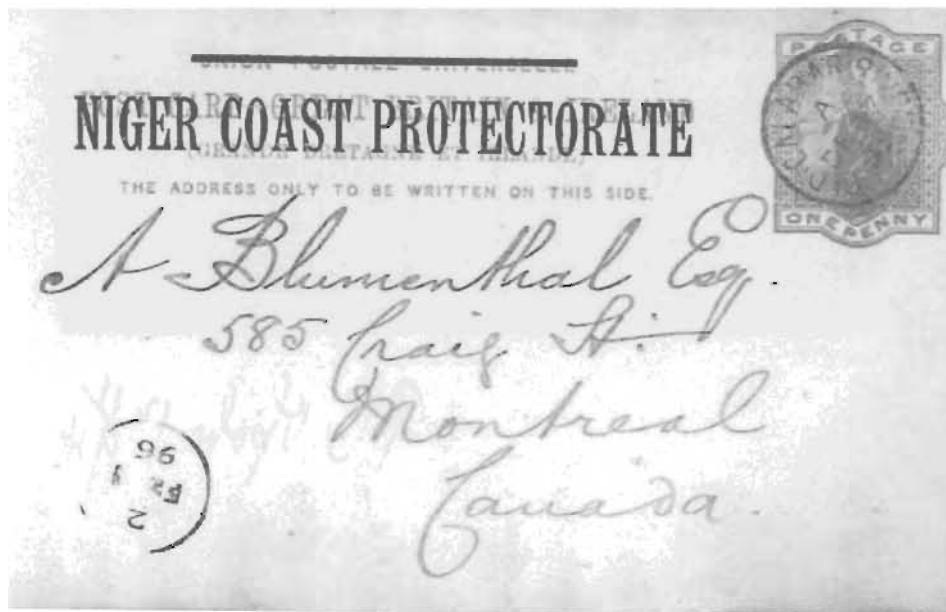 UNION POSTALE UNIVERSELLE
POST CARD GREAT BRITAIN & IRELAND
NIGER COAST PROTECTORATE
(GRANDE BRETAGNE ET IRLANDE)
THE ADDRESS ONLY TO BE WRITTEN ON THIS SIDE.
POSTAGE
ONE PENNY
A Blumenthal Esq.
585 Craig St.
Montreal
Canada.
96
FE
2